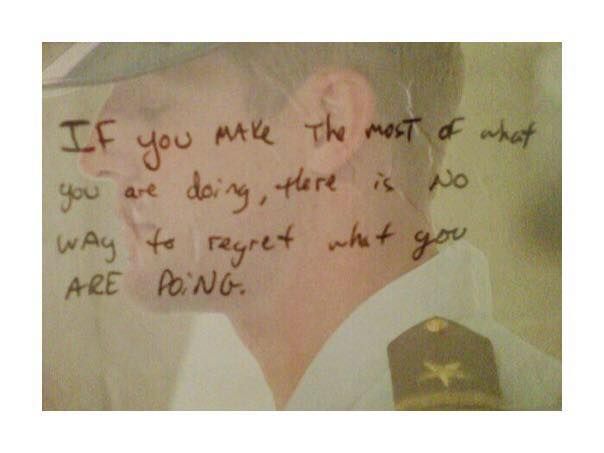 IF you MAKE The MOST OF what
you are doing, there is NO
WAY to regret what you
ARE DOING.